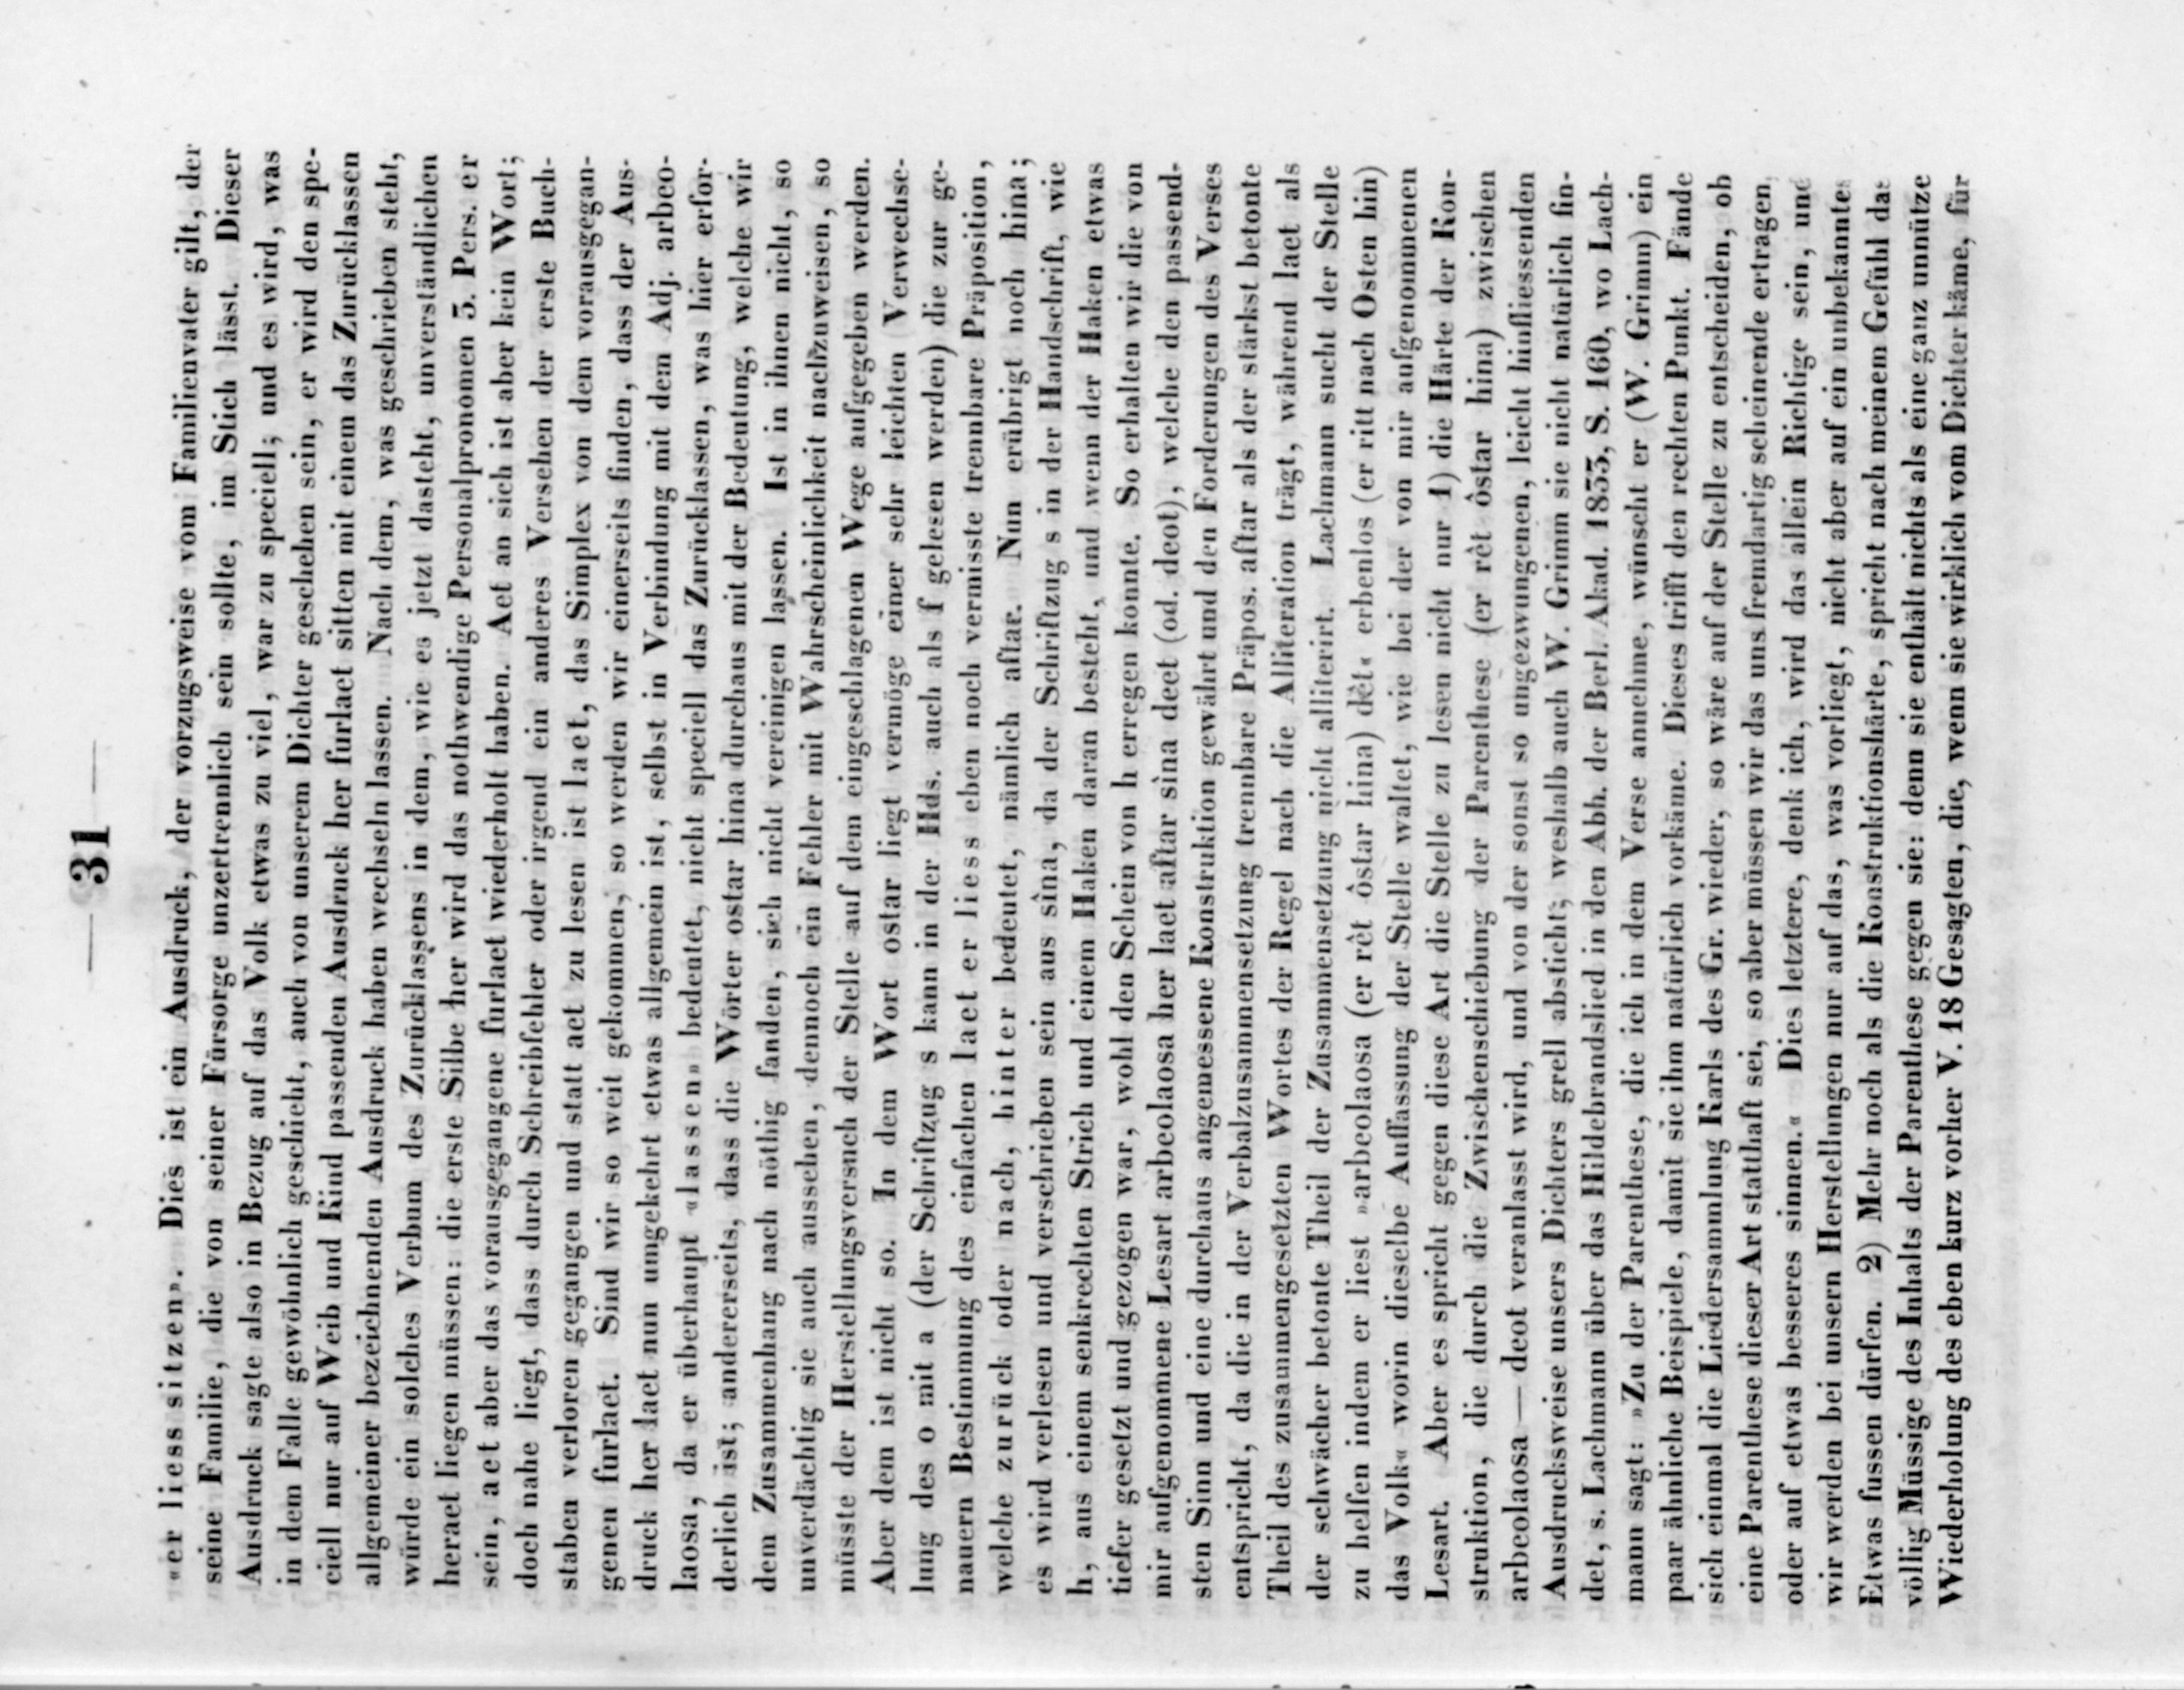 — 31 —
«er liess sitzen». Dies ist ein Ausdruck, der vorzugsweise vom Familienvater gilt, der
seine Familie, die von seiner Fürsorge unzertrennlich sein sollte, im Stich lässt. Dieser
Ausdruck sagte also in Bezug auf das Volk etwas zu viel, war zu speciell; und es wird, was
in dem Falle gewöhnlich geschieht, auch von unserem Dichter geschehen sein, er wird den spe-
ciell nur auf Weib und Kind passenden Ausdruck her furlaet sitten mit einem das Zurücklassen
allgemeiner bezeichnenden Ausdruck haben wechseln lassen. Nach dem, was geschrieben steht,
würde ein solches Verbum des Zurücklassens in dem, wie es jetzt dasteht, unverständlichen
heraet liegen müssen: die erste Silbe her wird das nothwendige Personalpronomen 3. Pers. er
sein, aet aber das vorausgegangene furlaet wiederholt haben. Aet an sich ist aber kein Wort;
doch nahe liegt, dass durch Schreibfehler oder irgend ein anderes Versehen der erste Buch-
staben verloren gegangen und statt aet zu lesen ist laet, das Simplex von dem vorausgegan-
genen furlaet. Sind wir so weit gekommen, so werden wir einerseits finden, dass der Aus-
druck her laet nun umgekehrt etwas allgemein ist, selbst in Verbindung mit dem Adj. arbeo-
laosa, da er überhaupt «lassen» bedeutet, nicht speciell das Zurücklassen, was hier erfor-
derlich ist; andererseits, dass die Wörter ostar hina durchaus mit der Bedeutung, welche wir
dem Zusammenhang nach nöthig fanden, sich nicht vereinigen lassen. Ist in ihnen nicht, so
unverdächtig sie auch aussehen, dennoch ein Fehler mit Wahrscheinlichkeit nachzuweisen, so
müsste der Herstellungsversuch der Stelle auf dem eingeschlagenen Wege aufgegeben werden.
Aber dem ist nicht so. In dem Wort ostar liegt vermöge einer sehr leichten (Verwechse-
lung des o mit a (der Schriftzug s kann in der Hds. auch als f gelesen werden) die zur ge-
nauern Bestimmung des einfachen laet er liess eben noch vermisste trennbare Präposition,
welche zurück oder nach, hinter bedeutet, nämlich aftar. Nun erübrigt noch hina;
es wird verlesen und verschrieben sein aus sìna, da der Schriftzug s in der Handschrift, wie
h, aus einem senkrechten Strich und einem Haken daran besteht, und wenn der Haken etwas
tiefer gesetzt und gezogen war, wohl den Schein von h erregen konnte. So erhalten wir die von
mir aufgenommene Lesart arbeolaosa her laet aftar sìna deet (od. deot), welche den passend-
sten Sinn und eine durchaus angemessene Konstruktion gewährt und den Forderungen des Verses
entspricht, da die in der Verbalzusammensetzung trennbare Präpos. aftar als der stärkst betonte
Theil des zusammengesetzten Wortes der Regel nach die Alliteration trägt, während laet als
der schwächer betonte Theil der Zusammensetzung nicht alliterirt. Lachmann sucht der Stelle
zu helfen indem er liest »arbeolaosa (er rêt ôstar hina) dêt« erbenlos (er ritt nach Osten hin)
das Volk« worin dieselbe Auffassung der Stelle waltet, wie bei der von mir aufgenommenen
Lesart. Aber es spricht gegen diese Art die Stelle zu lesen nicht nur 1) die Härte der Kon-
struktion, die durch die Zwischenschiebung der Parenthese (er rêt ôstar hina) zwischen
arbeolaosa — deot veranlasst wird, und von der sonst so ungezwungenen, leicht hinfliessenden
Ausdrucksweise unsers Dichters grell absticht; weshalb auch W. Grimm sie nicht natürlich fin-
det, s. Lachmann über das Hildebrandslied in den Abh. der Berl. Akad. 1833, S. 160, wo Lach-
mann sagt: »Zu der Parenthese, die ich in dem Verse annehme, wünscht er (W. Grimm) ein
paar ähnliche Beispiele, damit sie ihm natürlich vorkäme. Dieses trifft den rechten Punkt. Fände
sich einmal die Liedersammlung Karls des Gr. wieder, so wäre auf der Stelle zu entscheiden, ob
eine Parenthese dieser Art statthaft sei, so aber müssen wir das uns fremdartig scheinende ertragen,
oder auf etwas besseres sinnen.« Dies letztere, denk ich, wird das allein Richtige sein, und
wir werden bei unsern Herstellungen nur auf das, was vorliegt, nicht aber auf ein unbekanntes
Etwas fussen dürfen. 2) Mehr noch als die Konstruktionshärte, spricht nach meinem Gefühl das
völlig Müssige des Inhalts der Parenthese gegen sie: denn sie enthält nichts als eine ganz unnütze
Wiederholung des eben kurz vorher V. 18 Gesagten, die, wenn sie wirklich vom Dichter käme, für